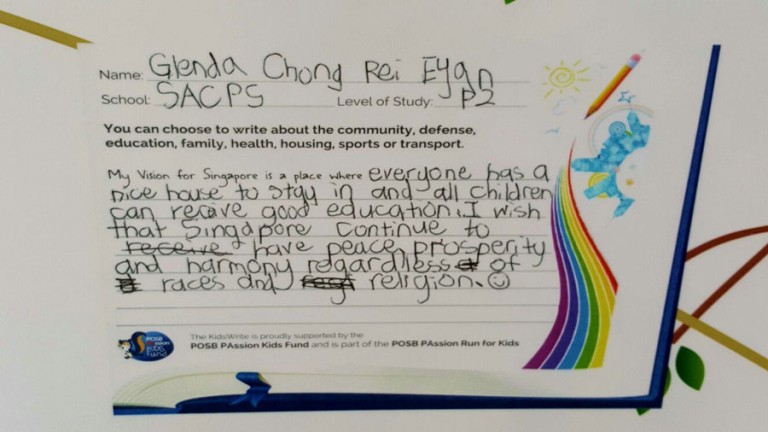 Name: Glenda Chong Rei Eyan
School: SACPS Level of Study: P2
You can choose to write about the community, defense,
education, family, health, housing, sports or transport.
My Vision for Singapore is a place where everyone has a
nice house to stay in and all children
can recive good education. I wish
that Singapore continue to
receive have peace, prosperity
and harmony regardless of
races and religion.☺
POSB
PAssion
Kids
Fund
The KidsWrite is proudly supported by the
POSB PAssion Kids Fund and is part of the POSB PAssion Run for Kids